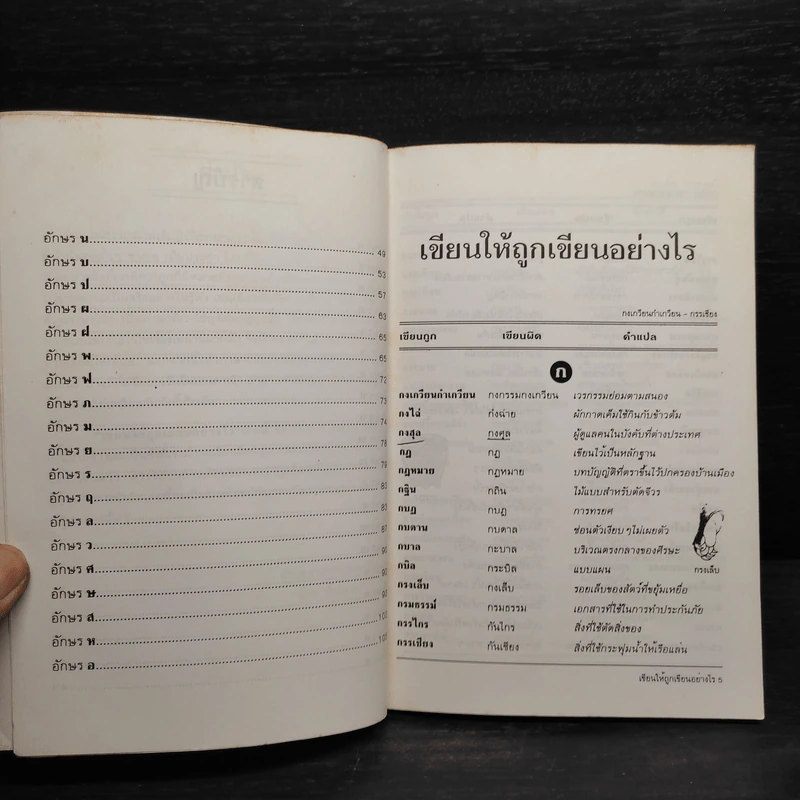 อักษร น 49
อักษร บ 53
อักษร ป 57
อักษร ผ 63
อักษร ฝ 65
อักษร พ 65
อักษร ฟ 72
อักษร ภ 73
อักษร ม 74
อักษร ย 78
อักษร ร 79
อักษร ฤ 83
อักษร ล 85
อักษร ว 87
อักษร ศ
อักษร ษ
อักษร ส
อักษร ห
อักษร อ
เขียนให้ถูกเขียนอย่างไร
กงเกวียนกำเกวียน - กรรเชียง
เขียนถูก เขียนผิด คำแปล
ก
กงเกวียนกำเกวียน กงกรรมกงเกวียน เวรกรรมย่อมตามสนอง
กงไฉ่ กงฉ่าย ผักกาดเค็มใช้กินกับข้าวต้ม
กงสุล กงศุล ผู้ดูแลคนในบังคับที่ต่างประเทศ
กฎ กฏ เขียนไว้เป็นหลักฐาน
กฎหมาย กฏหมาย บทบัญญัติที่ตราขึ้นไว้ปกครองบ้านเมือง
กฐิน กถิน ไม้แบบสำหรับตัดจีวร
กบฏ กบฎ การทรยศ
กบดาน กบดาล ซ่อนตัวเงียบๆไม่เผยตัว
กบาล กะบาล บริเวณตรงกลางของศีรษะ
กบิล กระบิล แบบแผน
กรงเล็บ กงเล็บ รอยเล็บของสัตว์ที่ขยุ้มเหยื่อ
กรงเล็บ
กรมธรรม์ กรมธรรม เอกสารที่ใช้ในการทำประกันภัย
กรรไกร กันไกร สิ่งที่ใช้ตัดสิ่งของ
กรรเชียง กันเชียง สิ่งที่ใช้กระพุ่มน้ำให้เรือแล่น
เขียนให้ถูกเขียนอย่างไร 5